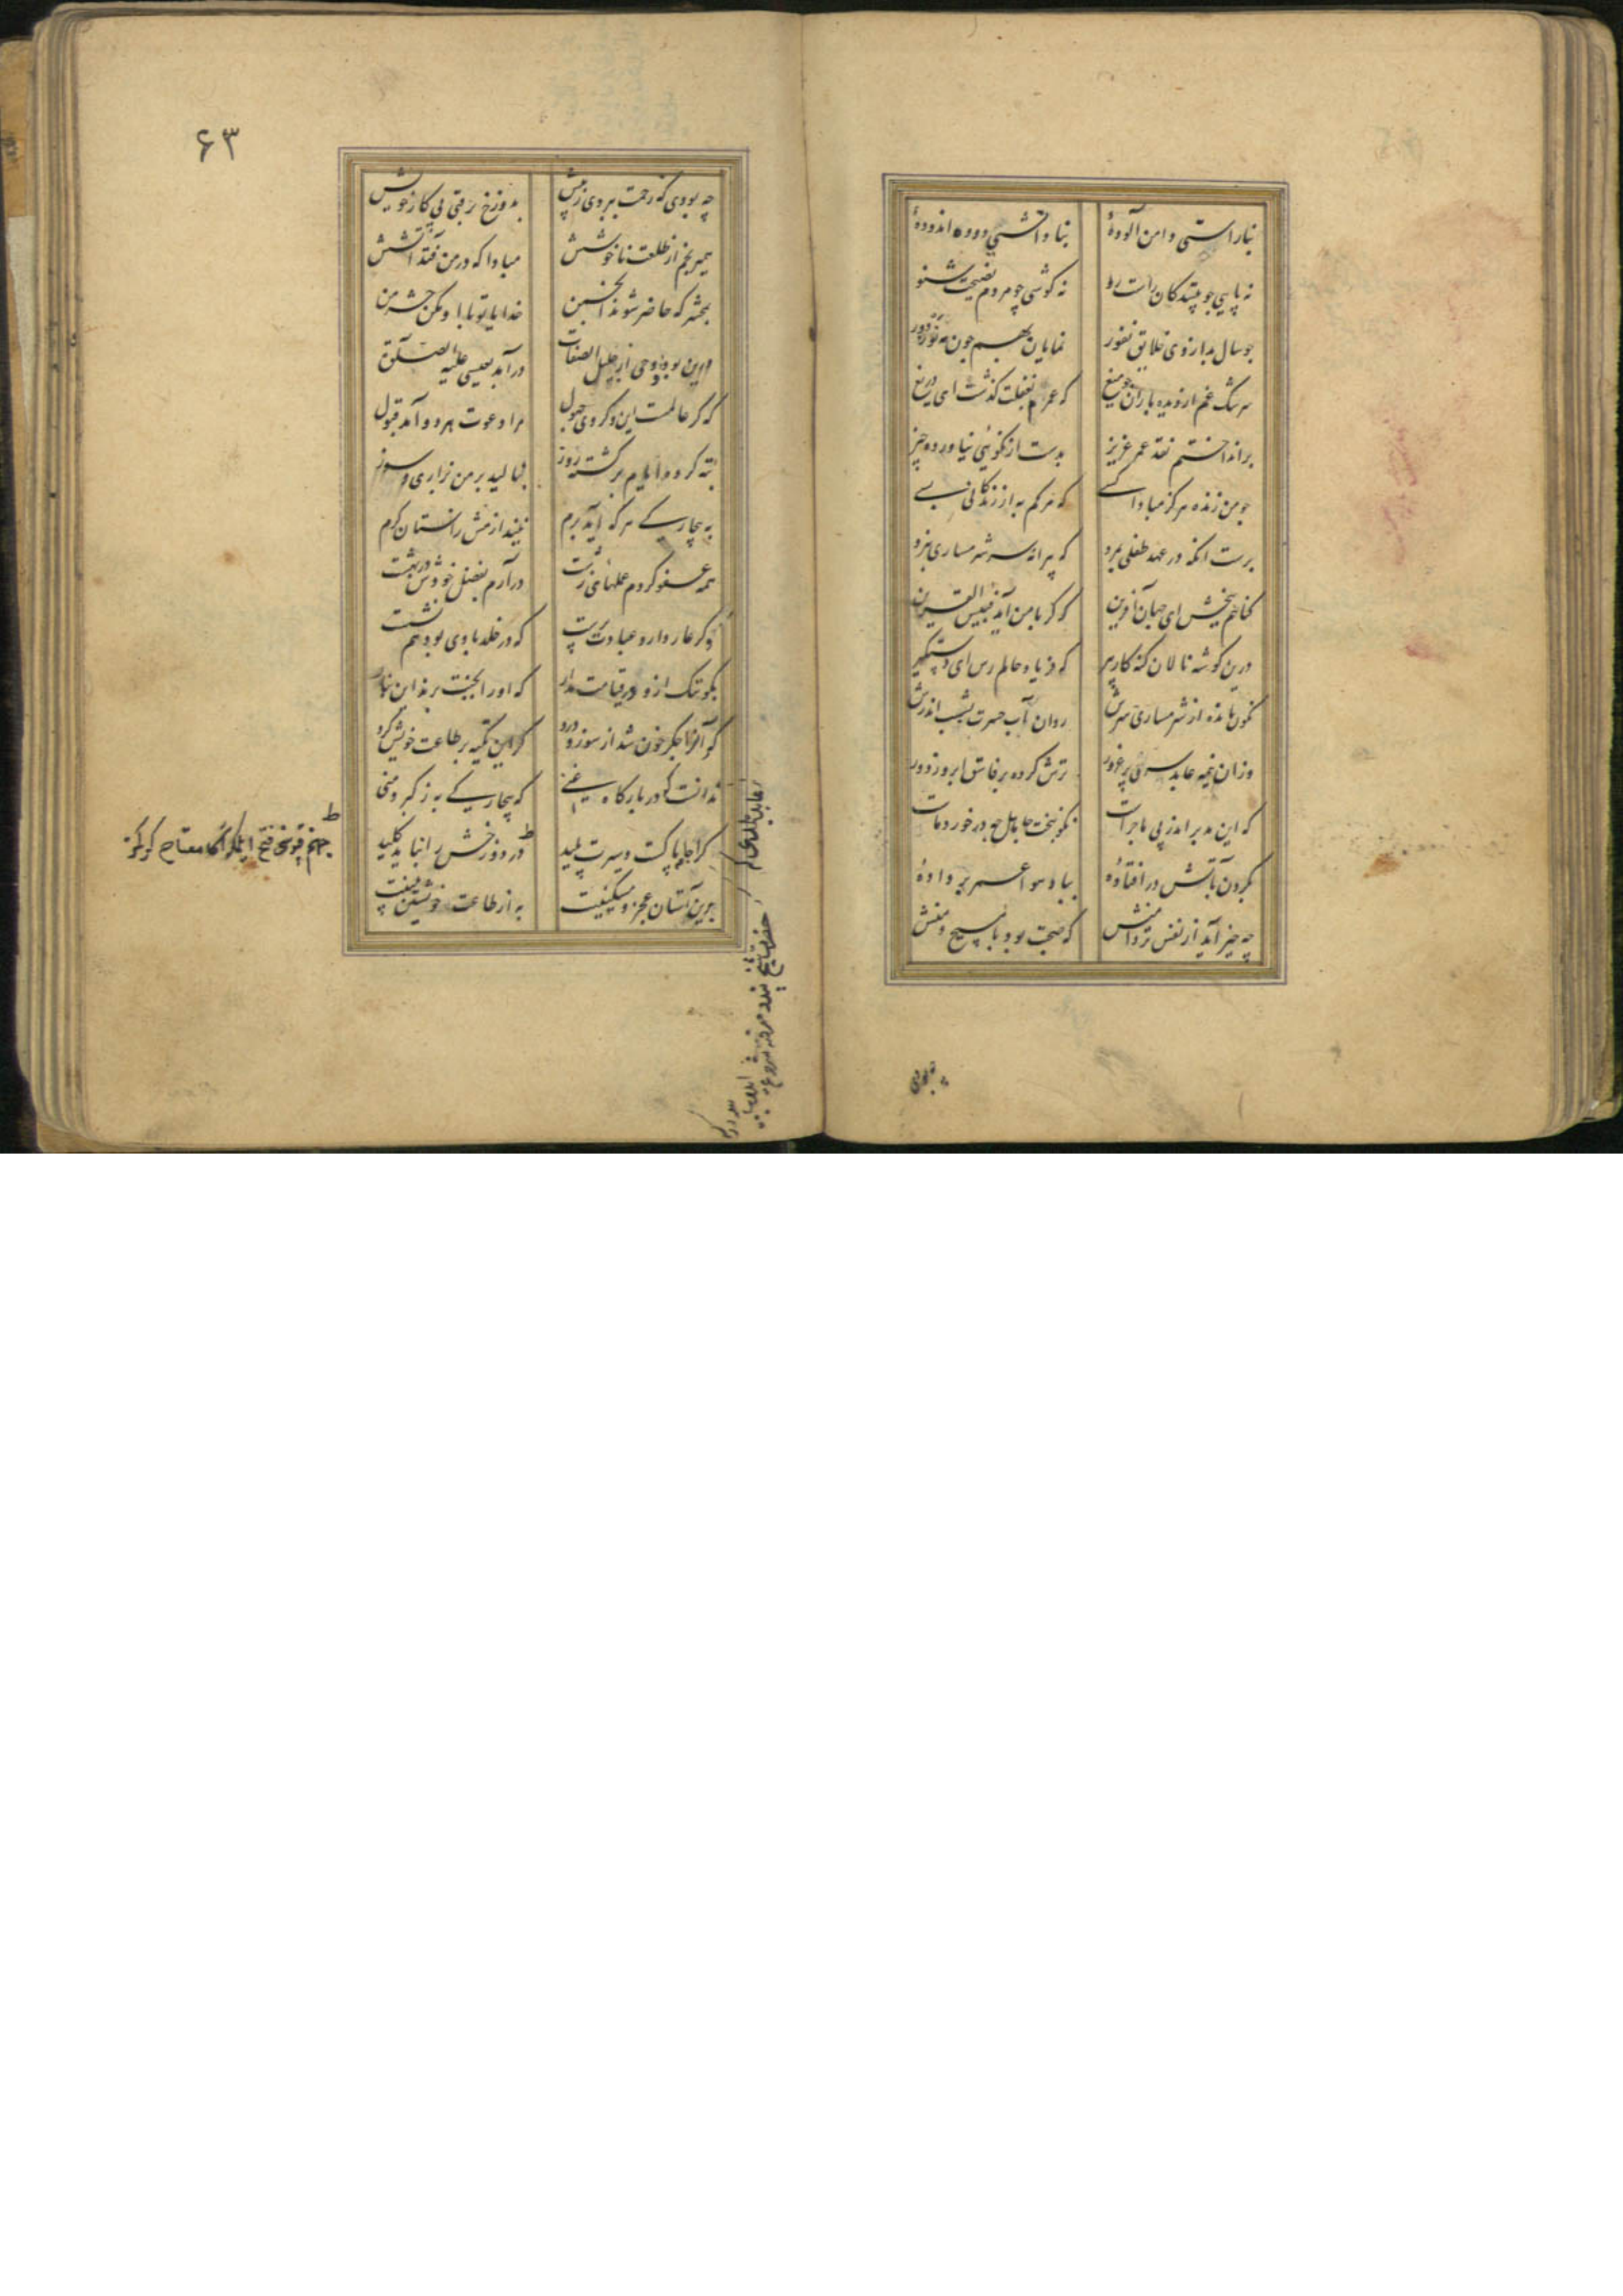 بناراستی دامن آلودهٔ
بناداشتی دوده اندودهٔ
نه پایی چو پیندکان راست رو
نه کوشی چو مردم نصیحت شنو
چو سال بد از وی خلایق نفور
نمایان بهم چون مه نو ز دور
سرشک غم از دیده باران چو میغ
که عمرم بغفلت کذشت ای دریغ
برانداختم نقد عمر عزیز
بدست از نکوئی نیاورده چیز
چو من زنده هرکز مبادا کسی
که مرکم به از زندکانی بسی
برست آنکه در عهد طفلی بمرد
که پیرانه سر شرمساری نبرد
کناهم ببخش ای جهان آفرین
که کر با من آید فبیس القرین
درین کوشه نالان کنه کار پیر
که فریاد حالم رس ای دستکیر
نکون مانده از شرمساری سرش
روان آب حسرت بشیب اندرش
وزان نیمه عابد سری پر غرور
ترش کرده بر فاسق ابرو ز دور
که این مدبر اندر پی ما چراست
نکون بخت جاهل چه در خورد ماست
بکردن بآتش در افتادهٔ
بباد هوا عمر بر دادهٔ
چه خیر آید از نفس تر دامنش
که صحبت بود با مسیح و منش
چه بودی
۶۳
چه بودی که زحمت ببردی ز پیش
بدوزخ برفتی پی کار خویش
همی رنجم از طلعت ناخوشش
مبادا که در من فتد آتشش
بمحشر که حاضر شوند انجمن
خدایا تو با او مکن حشر من
درین بود و وحی از جلیل الصفات
درآمد بعیسی علیه الصلوة
که کر عالمست این و کر وی جهول
مرا دعوت هر دو آمد قبول
تبه کرده ایام برکشته روز
بنالید بر من بزاری و سوز
به بیچارکی هر که آید برم
نیندازمش ز آستان کرم
همه عفو کردم عملهای زشت
درآرم بفضل خودش در بهشت
وکر عار دارد عبادت پرست
که در خلد با وی بود هم نشست
بکو ننک ازو در قیامت مدار
که او را بجنت برند این بنار
که آنرا جکر خون شد از سوز و درد
کر این تکیه بر طاعت خویش کرد
ندانست که در بارکاه غنی
که بیچارکی به ز کبر و منی
کرا جامه پاکست و سیرت پلید
در دوزخش را نباید کلید
برین آستان عجز و مسکینیت
به از طاعت و خویشتن بینیت